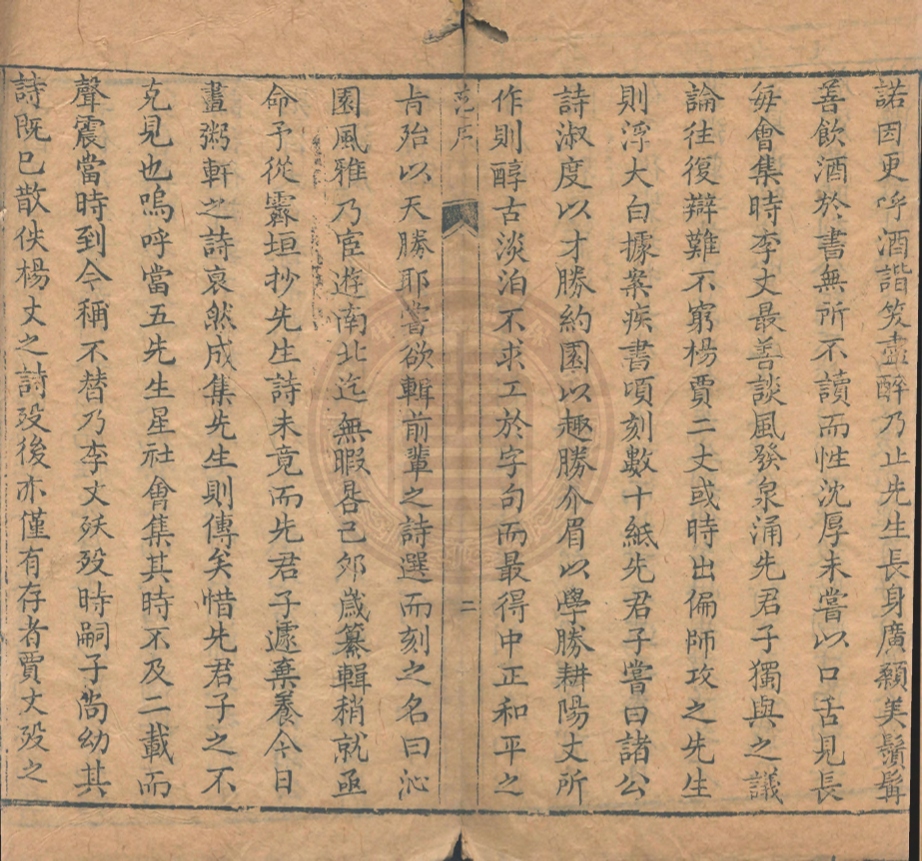 諾因更呼酒諧笑盡醉乃止先生長身廣顙美鬚髯
善飲酒於書無所不讀而性沈厚未嘗以口舌見長
每會集時李丈最善談風發泉涌先君子獨與之議
論往復辯難不窮楊賈二丈或時出偏師攻之先生
則浮大白據案疾書頃刻數十紙先君子嘗曰諸公
詩淑度以才勝約園以趣勝介眉以學勝耕陽丈所
作則醇古淡泊不求工於字句而最得中正和平之
序
二
肯殆以天勝耶嘗欲輯前輩之詩選而刻之名曰沁
園風雅乃宦遊南北迄無暇晷己夘歲纂輯稍就亟
命予從霽垣抄先生詩未竟而先君子遽棄養今日
畫粥軒之詩裒然成集先生則傳矣惜先君子之不
克見也嗚呼當五先生星社會集其時不及二載而
聲震當時到今稱不替乃李丈殀歿時嗣子尚幼其
詩既已散佚楊丈之詩歿後亦僅有存者賈丈歿之